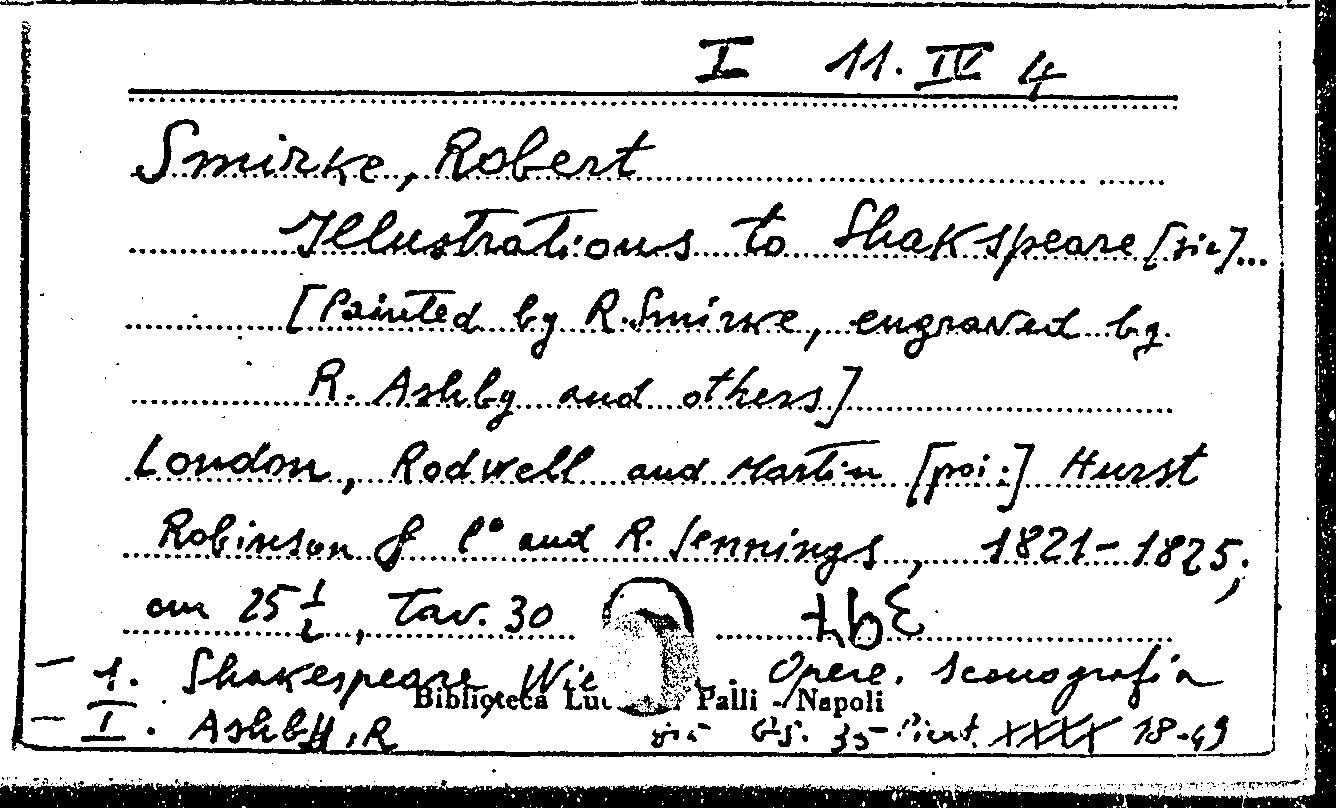 I 11. IV 4
Smirke, Robert
Illustrations to Shakspeare [sic]...
[Painted by R. Smirke, engraved by
R. Ashby and others]
London, Rodwell and Martin [poi:] Hurst
Robinson & C° and R. Jennings, 1821-1825;
cm 25 ½, tav. 30
1. Shakespeare Opere. Iconografia
Biblioteca Palli - Napoli
I. Ashby, R 35 XXXX 18-49